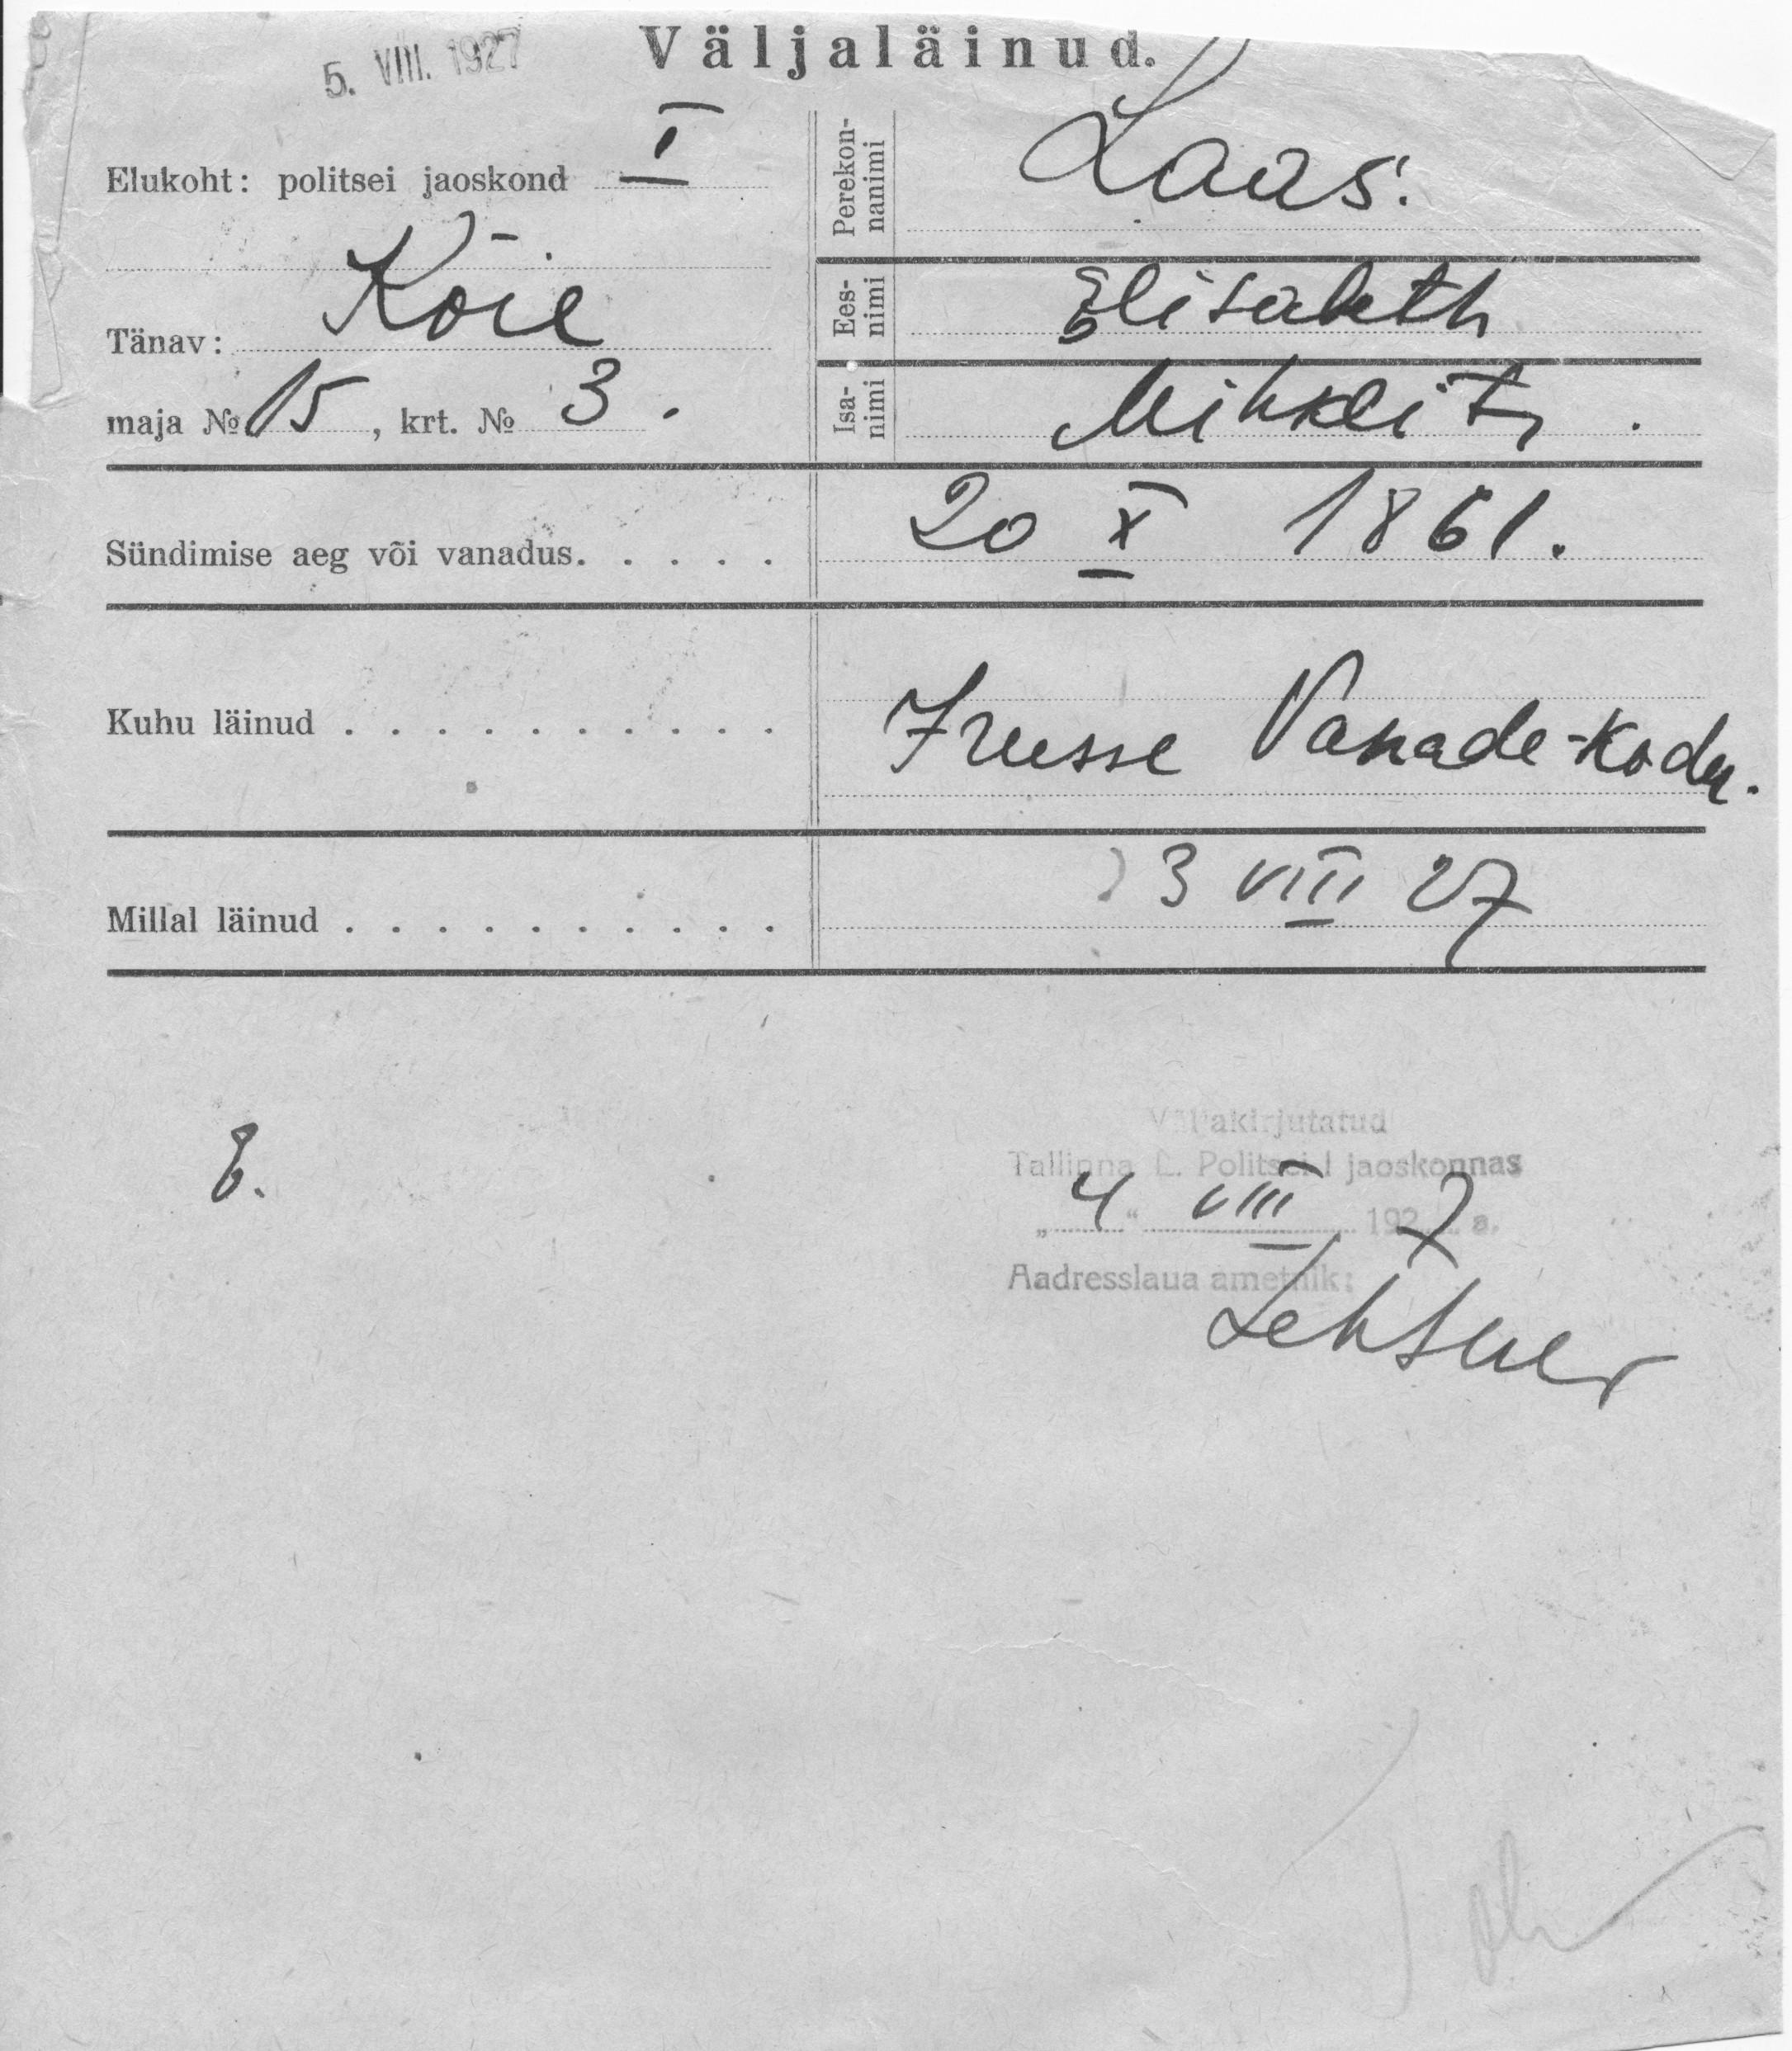 5. VIII. 1927
Väljaläinud.
Elukoht: politsei jaoskond I
Tänav: Köie
maja № 15, krt. № 3.
Perekon-
nanimi
Laas.
Ees-
nimi
Elisabeth
Isa-
nimi
Mihkli t.
Sündimise aeg või vanadus. . . . .
20 X 1861.
Kuhu läinud . . . . . . . . . .
Vanade-kodu.
Millal läinud . . . . . . . . . .
3 VIII 27
E.
Väljakirjutatud
Tallinna L. Politsei I jaoskonnas
„ 4 “ VIII 1927 a.
Aadresslaua ametnik: